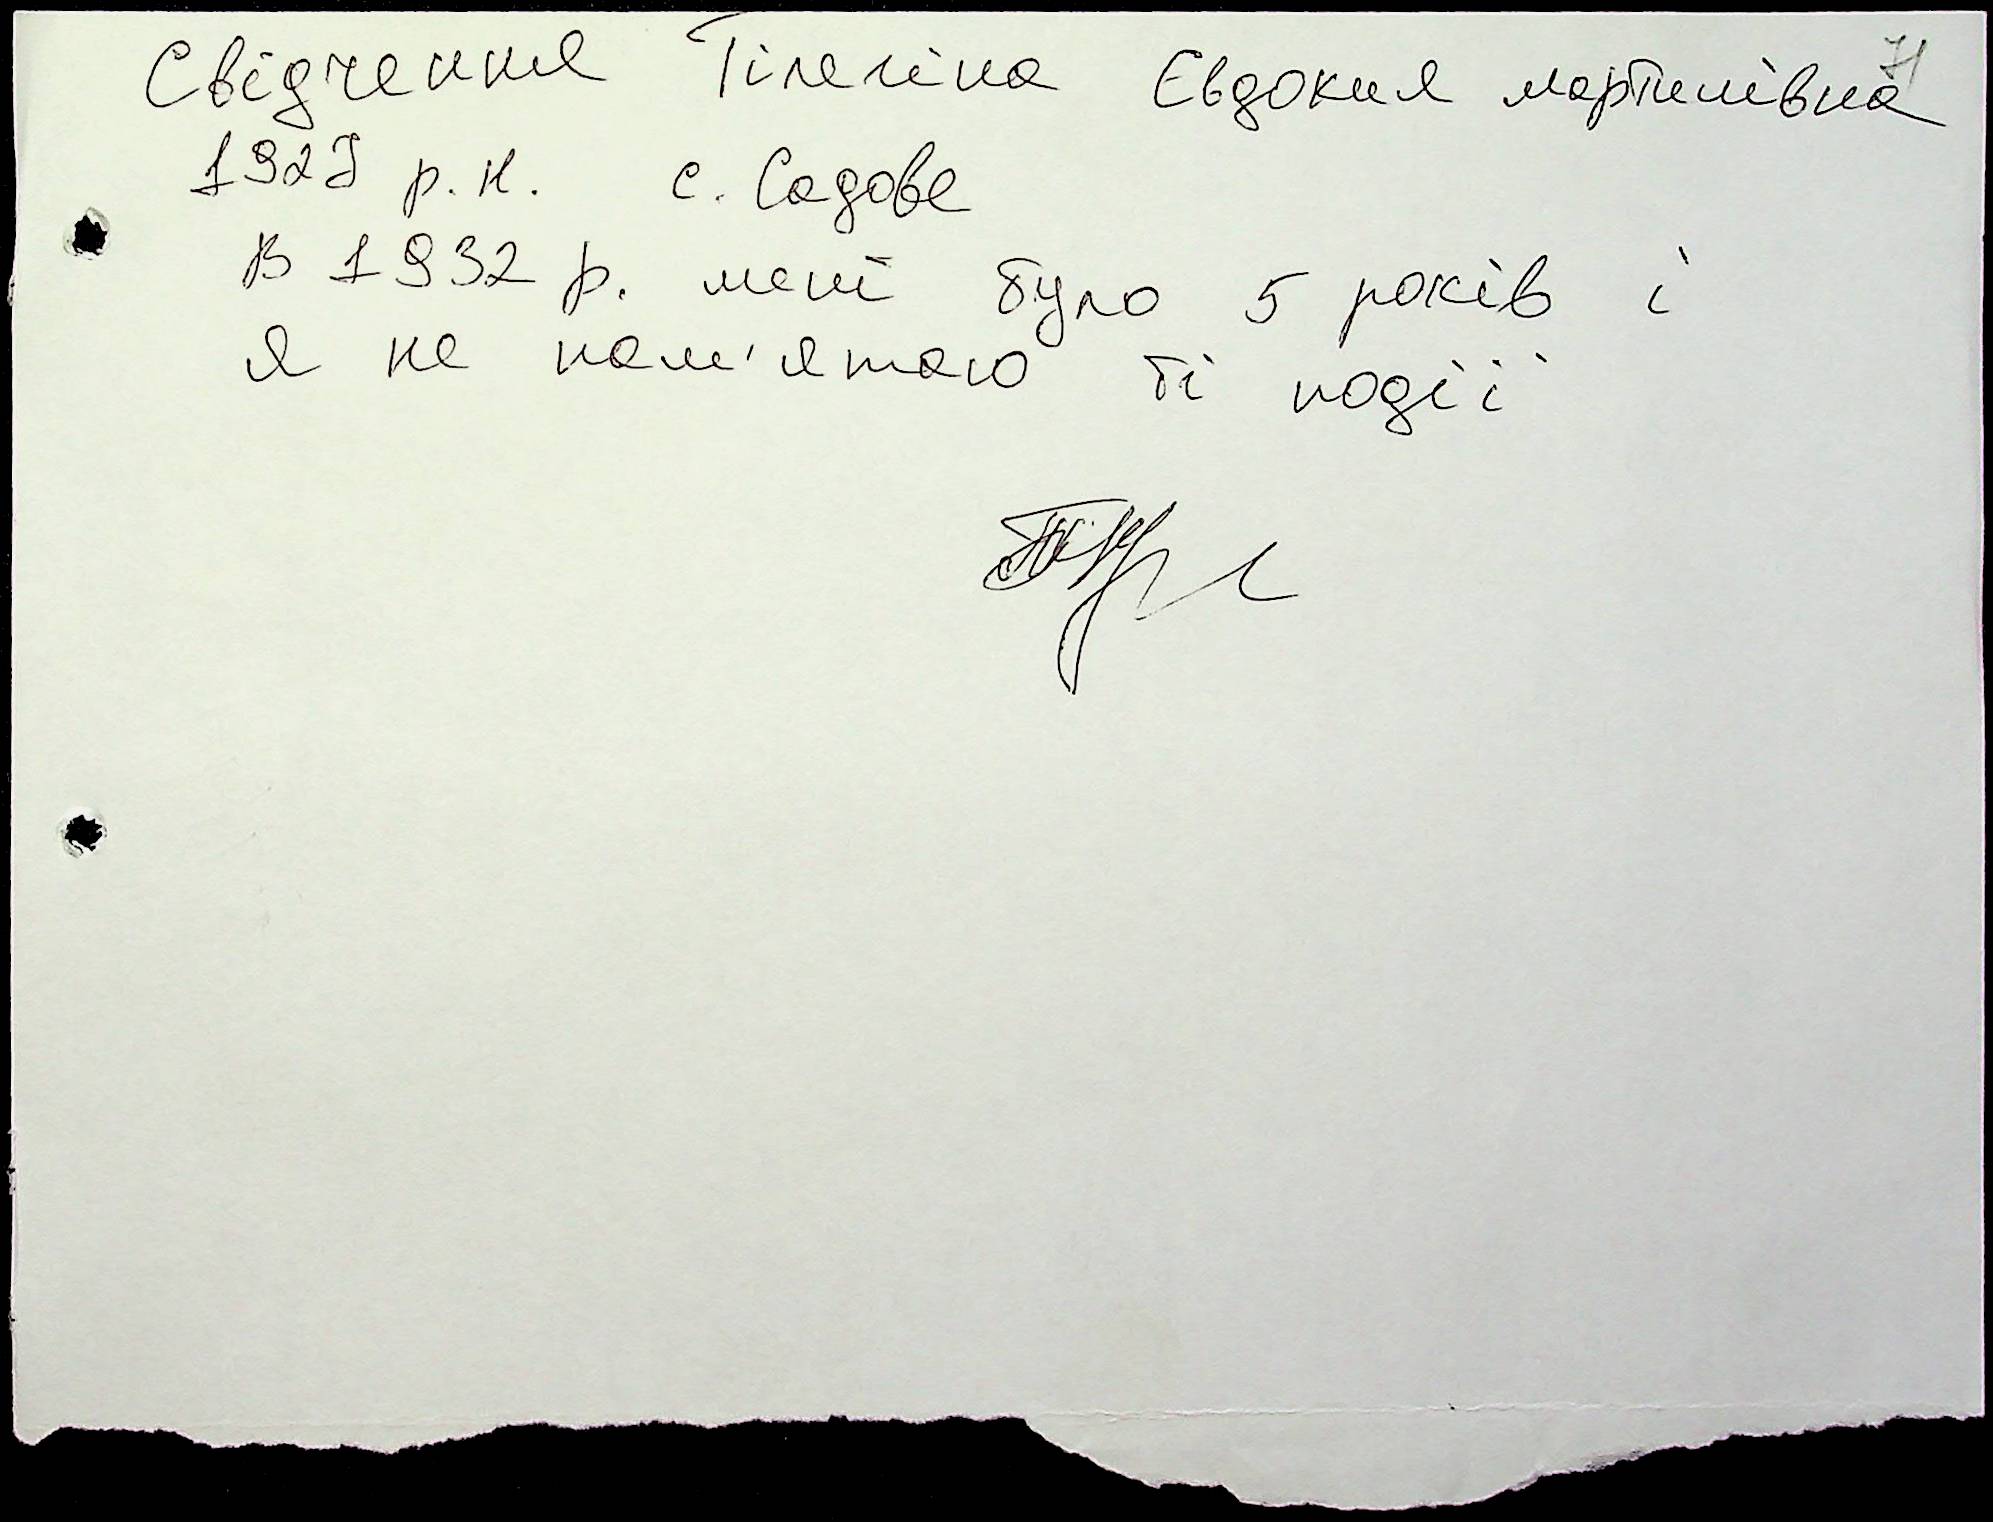 71
Свідчення Тілегіна Євдокия мартинівна
1927 р.н. с. Садове
В 1932 р. мені було 5 років і
я не пам'ятаю ті події